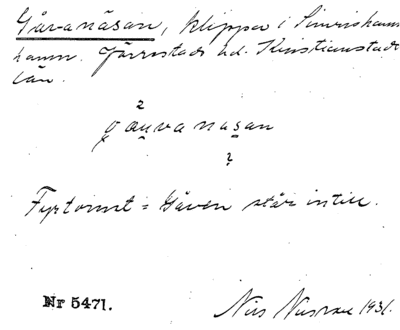 Gåvanäsan, klippor i Simrishamns
hamn. Järrestads hd. Kristianstads
län.
2
gauvanasan
2
Fyrtornet = Gåven står intill.
Nr 5471.
Nils 1931.